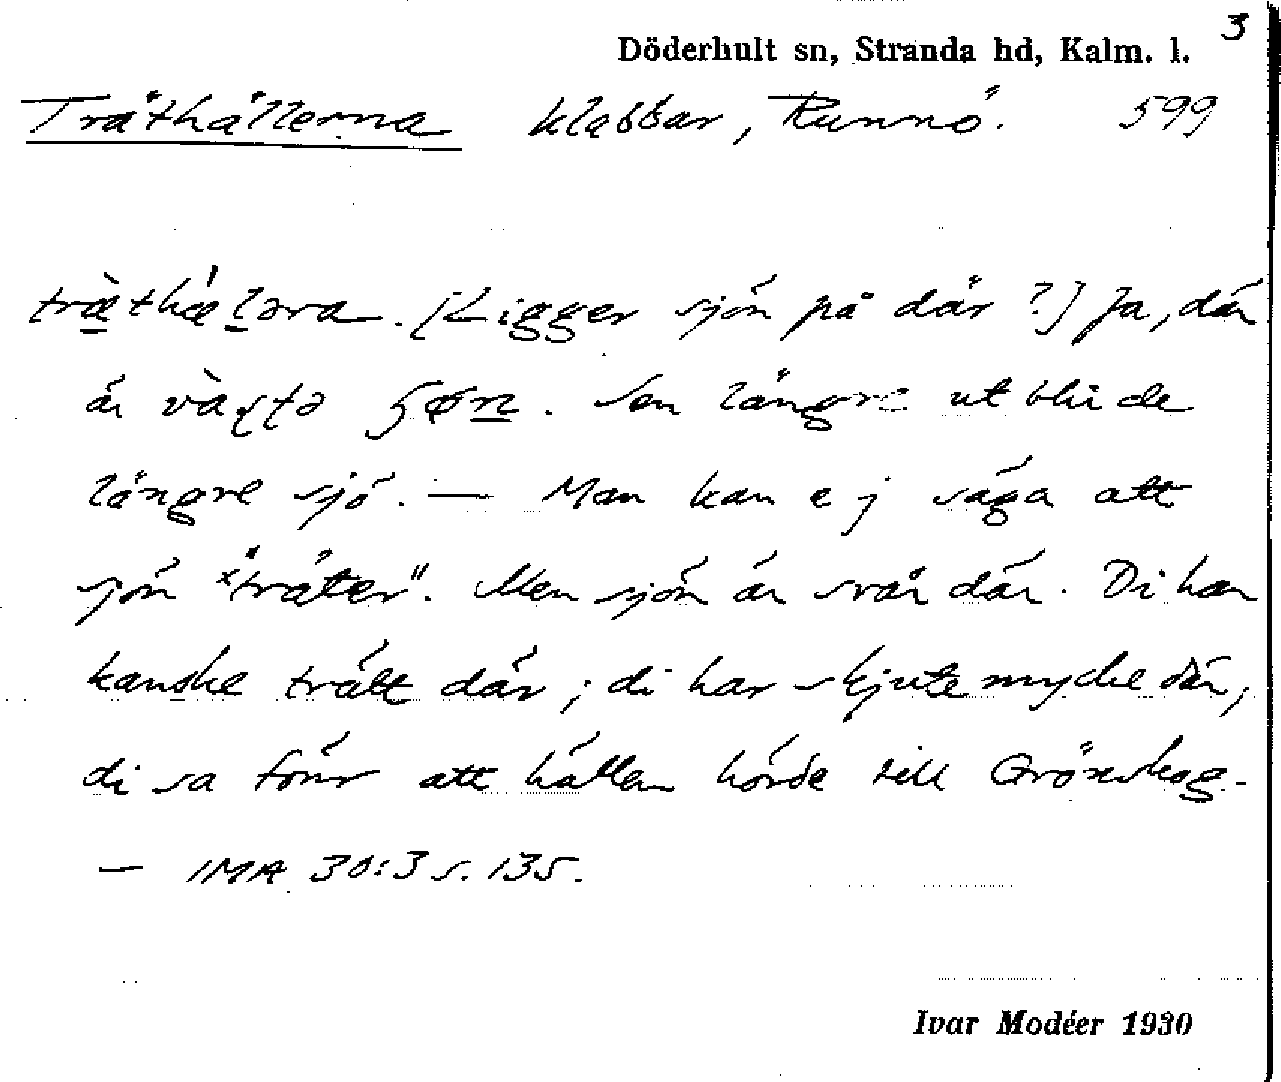 3
Döderhult sn, Stranda hd, Kalm. l.
Träthällerna klabbar, Runnö. 599
træ̀thæ̍lera. [Ligger sjön på där?] Ja, där
är sjøn. Sen längre ut blir de
längre sjö. — Man kan ej säga att
sjön "träter". Men sjön är svår där. Di har
kanske trätt där; di har skjute mycke där,
di sa förr att hällen hörde till Grönskog.
— IMA 30:3 s. 135.
Ivar Modéer 1930